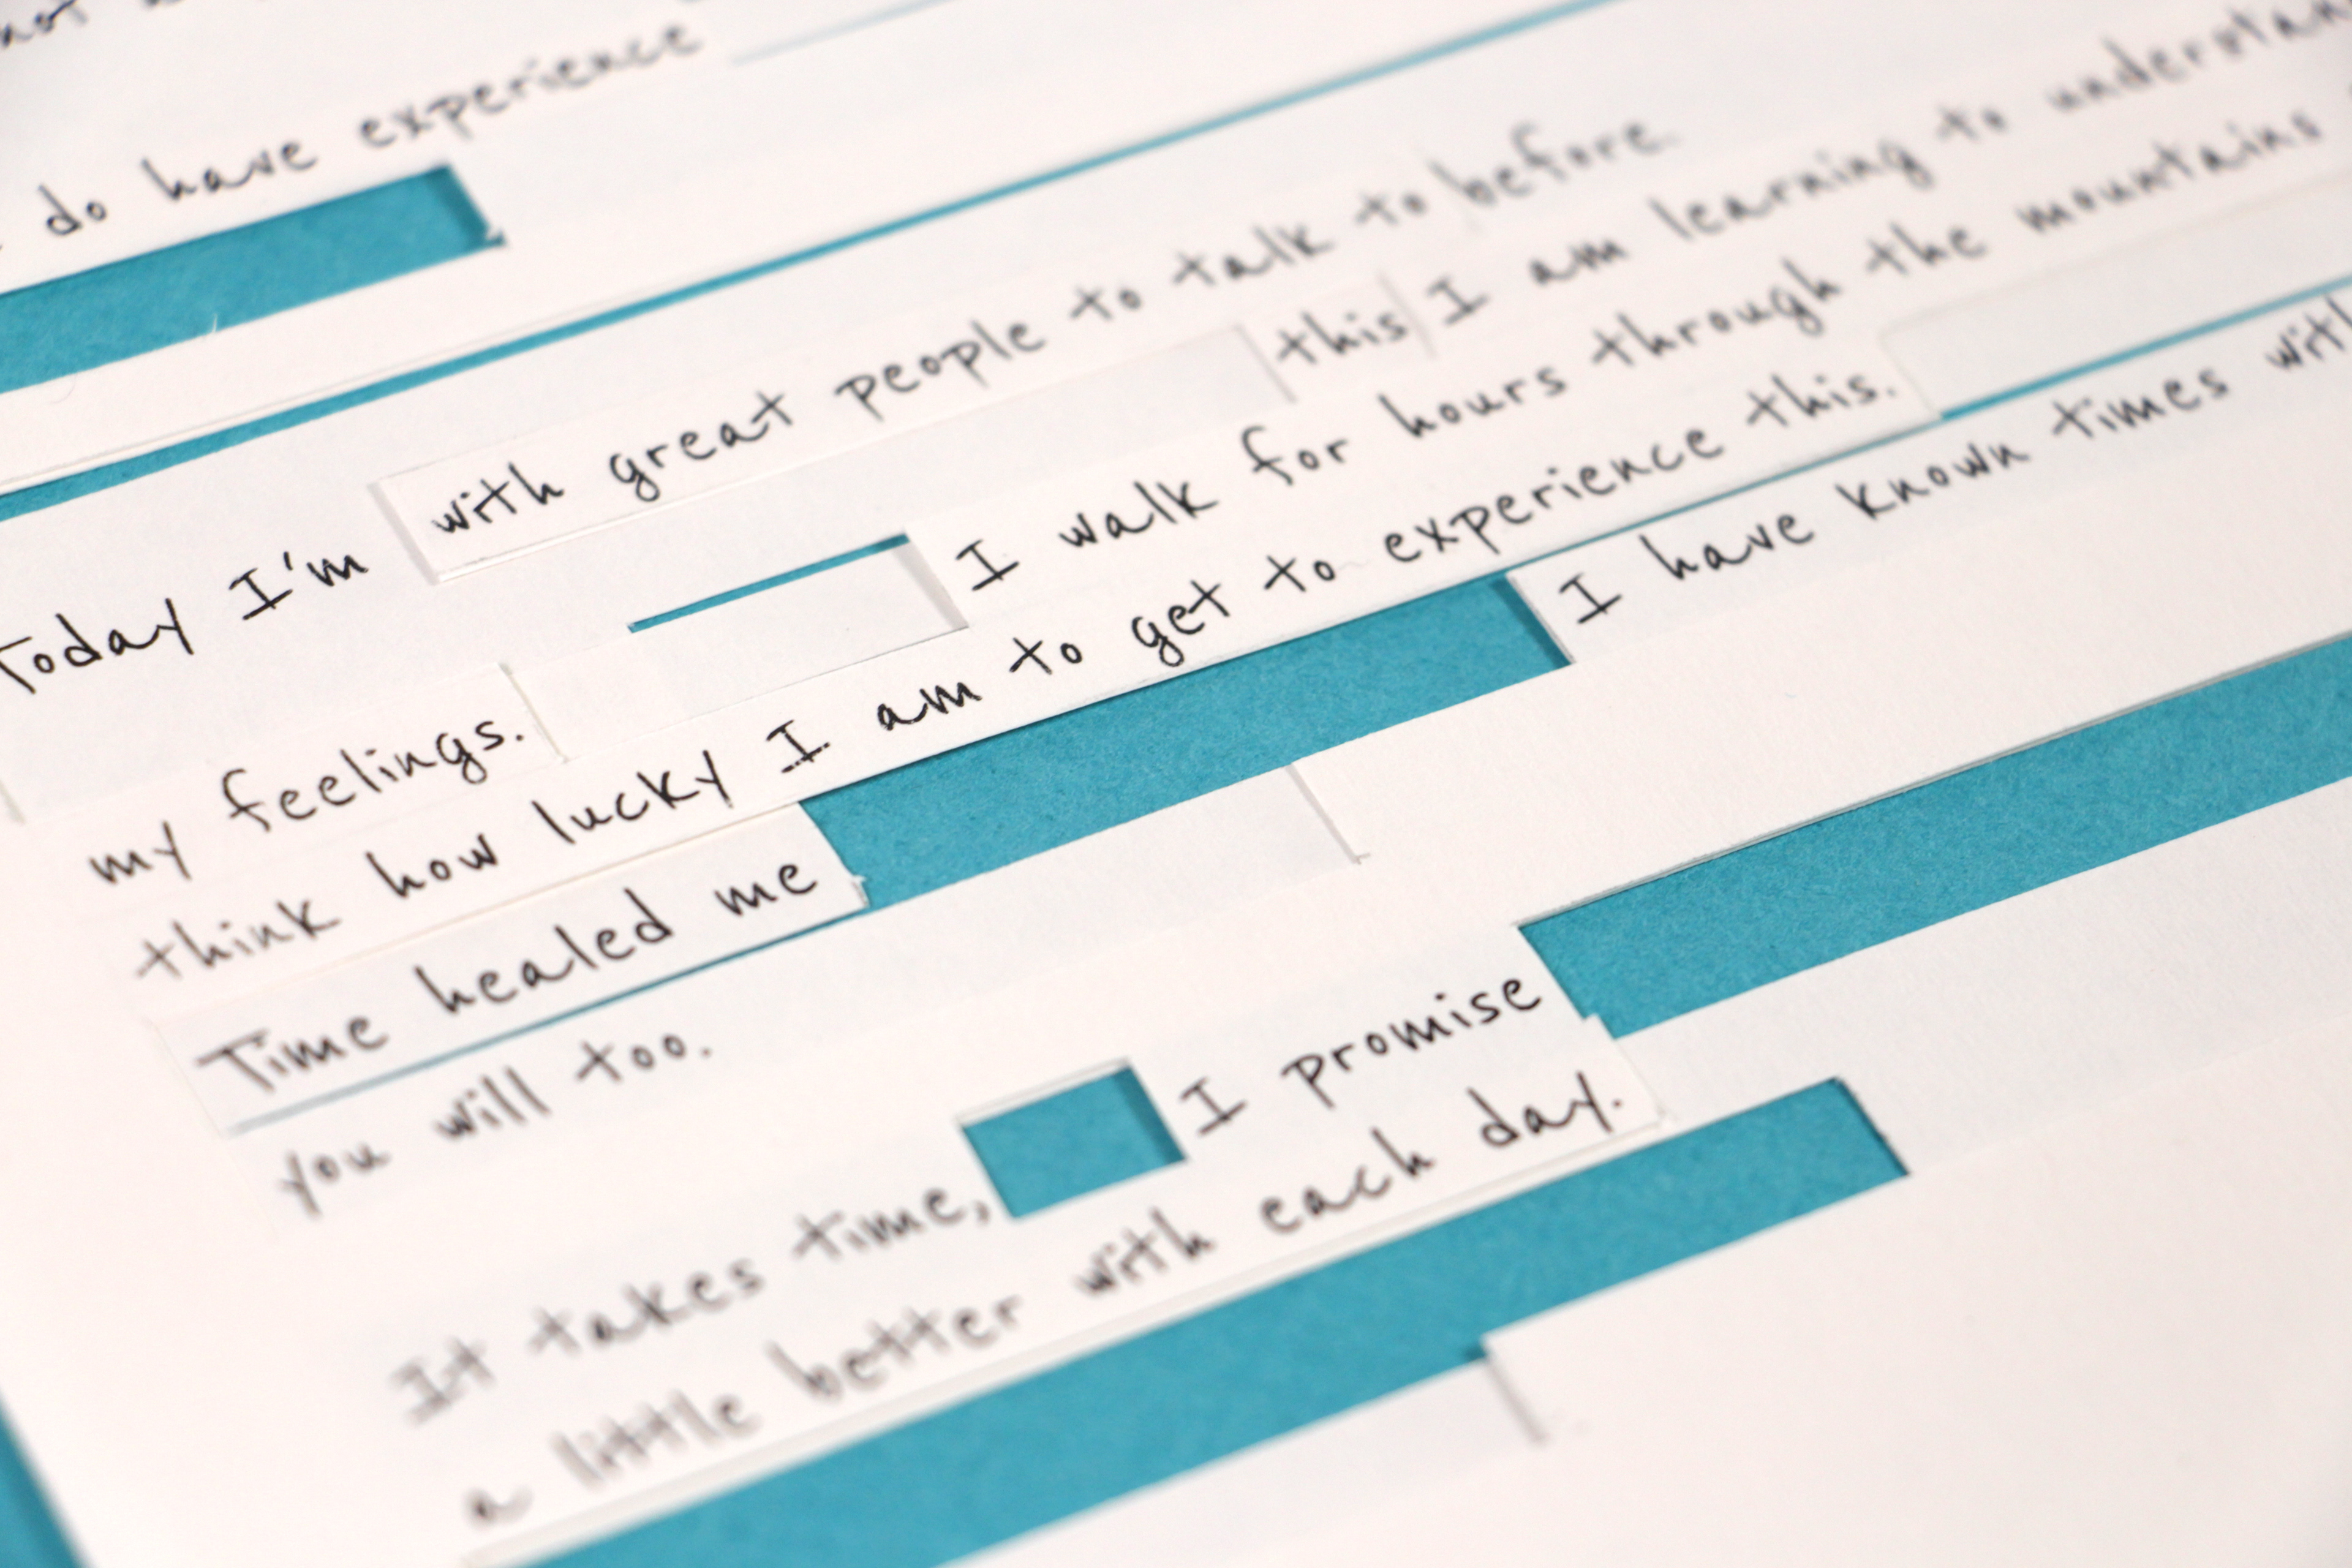 do have experience
Today I'm with great people to talk to before.
this I am learning to
my feelings. I walk for hours through the mountains
think how lucky I am to get to experience this.
Time healed me I have known times with
you will too.
It takes time, I promise
a little better with each day.